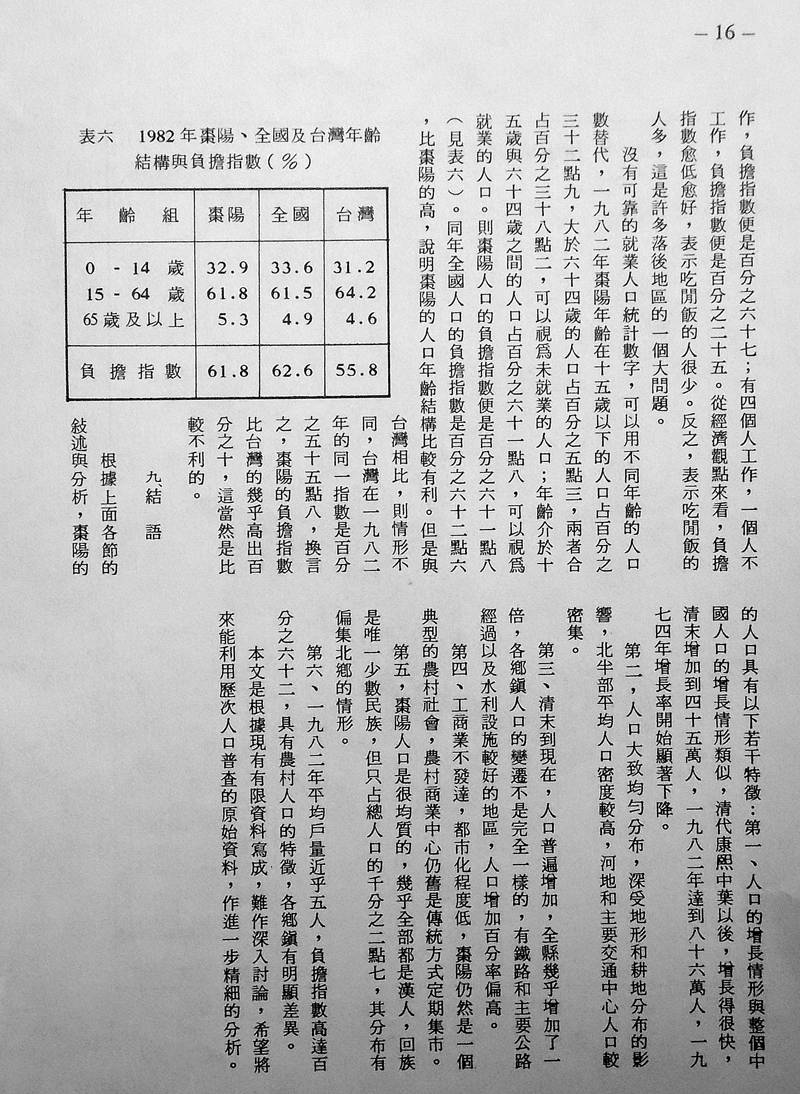 – 16 –
作，負擔指數便是百分之六十七；有四個人工作，一個人不
工作，負擔指數便是百分之二十五。從經濟觀點來看，負擔
指數愈低愈好，表示吃閒飯的人很少。反之，表示吃閒飯的
人多，這是許多落後地區的一個大問題。
沒有可靠的就業人口統計數字，可以用不同年齡的人口
數替代，一九八二年棗陽年齡在十五歲以下的人口占百分之
三十二點九，大於六十四歲的人口占百分之五點三，兩者合
占百分之三十八點二，可以視爲未就業的人口；年齡介於十
五歲與六十四歲之間的人口占百分之六十一點八，可以視爲
就業的人口。則棗陽人口的負擔指數便是百分之六十一點八
（見表六）。同年全國人口的負擔指數是百分之六十二點六
，比棗陽的高，說明棗陽的人口年齡結構比較有利。但是與
表六　1982年棗陽、全國及台灣年齡
結構與負擔指數（%）
年齡組　棗陽　全國　台灣
0 - 14 歲　32.9　33.6　31.2
15 - 64 歲　61.8　61.5　64.2
65歲及以上　5.3　4.9　4.6
負擔指數　61.8　62.6　55.8
台灣相比，則情形不
同，台灣在一九八二
年的同一指數是百分
之五十五點八，換言
之，棗陽的負擔指數
比台灣的幾乎高出百
分之十，這當然是比
較不利的。
九、結語
根據上面各節的
敍述與分析，棗陽的
的人口具有以下若干特徵：第一、人口的增長情形與整個中
國人口的增長情形類似，清代康熙中葉以後，增長得很快，
清末增加到四十五萬人，一九八二年達到八十六萬人，一九
七四年增長率開始顯著下降。
第二，人口大致均勻分布，深受地形和耕地分布的影
響，北半部平均人口密度較高，河地和主要交通中心人口較
密集。
第三、清末到現在，人口普遍增加，全縣幾乎增加了一
倍，各鄉鎮人口的變遷不是完全一樣的，有鐵路和主要公路
經過以及水利設施較好的地區，人口增加百分率偏高。
第四、工商業不發達，都市化程度低，棗陽仍然是一個
典型的農村社會，農村商業中心仍舊是傳統方式定期集市。
第五，棗陽人口是很均質的，幾乎全部都是漢人，回族
是唯一少數民族，但只占總人口的千分之二點七，其分布有
偏集北鄉的情形。
第六、一九八二年平均戶量近乎五人，負擔指數高達百
分之六十二，具有農村人口的特徵，各鄉鎮有明顯差異。
本文是根據現有有限資料寫成，難作深入討論，希望將
來能利用歷次人口普查的原始資料，作進一步精細的分析。